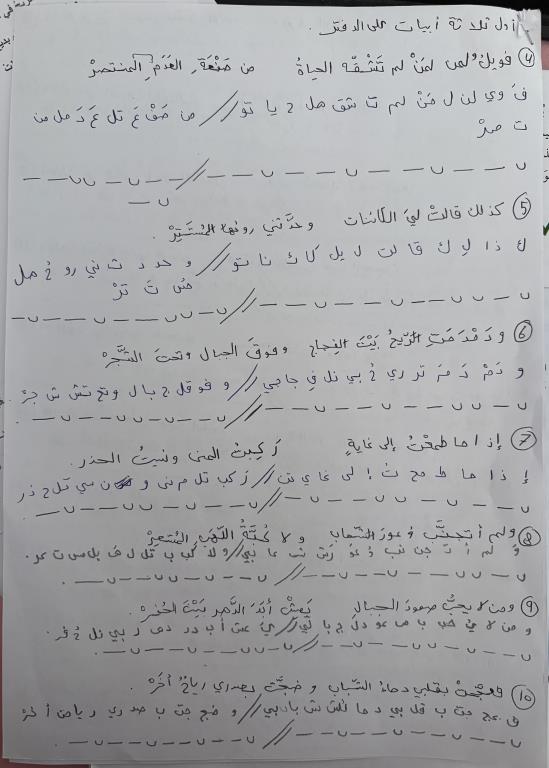 أول ثلاثة أبيات على الدفتر.
④ فويلٌ لمن لمَنْ لم تَشُقْه الحياةُ من صَفْعَةِ العَدَمِ المنتصرْ
فَ وي لن ل مَنْ لم تا شق هل ح يا تو // من صَفْ عَ تل عَ دَ مل من
ت صرْ
⑤ كذلك قالتْ ليَ الكائنات وحدَّثني روحُها المُستَتِرْ.
ك ذا لِ ك قا لت ل يل كا ئ نا تو // و حد د ث ني رو حُ هل
مُس تَ تِرْ
⑥ ودَمْدَمَتِ الرِّيحُ بَيْنَ الفِجاج وفوقَ الجبال وتحتَ الشَّجَرْ
و دَمْ دَ مَ تر ري حُ بي نل فِ جا جي // و فو قل ج بال وتح تش ش جرْ
⑦ إذا ما طمحْتُ إلى غايةٍ رَكِبتُ المنى ونسيتُ الحذر.
إ ذا ما ط مح تُ إ لى غا ي تن // ر كب تل م نى و ن سي تل ح ذر
⑧ ولم أتجنَّب وُعورَ الشِّعاب ولا كُبَّةَ اللَّهَبِ المُستَعِرْ
و لم أ تَ جن نب وُ عو رَش شِ عا بي // ولا كب ب تل ل هَ بل مس ت عر.
⑨ ومن لا يحبُّ صعودَ الجبال يَعِشْ أبَدَ الدَّهرِ بَيْنَ الحُفَرْ.
و من لا ي حب ب صا عو دل ج با لي // ي عش أ ب دد ده ر بي نل حُ فر.
⑩ فعجَّتْ بقلبي دماءُ الشَّباب وضجَّت بصدري رياحٌ أُخَرْ.
ف عج جت ب قل بي د ما ئش ش بابي // و ضج جت ب صدري ر ياحن أ خرْ